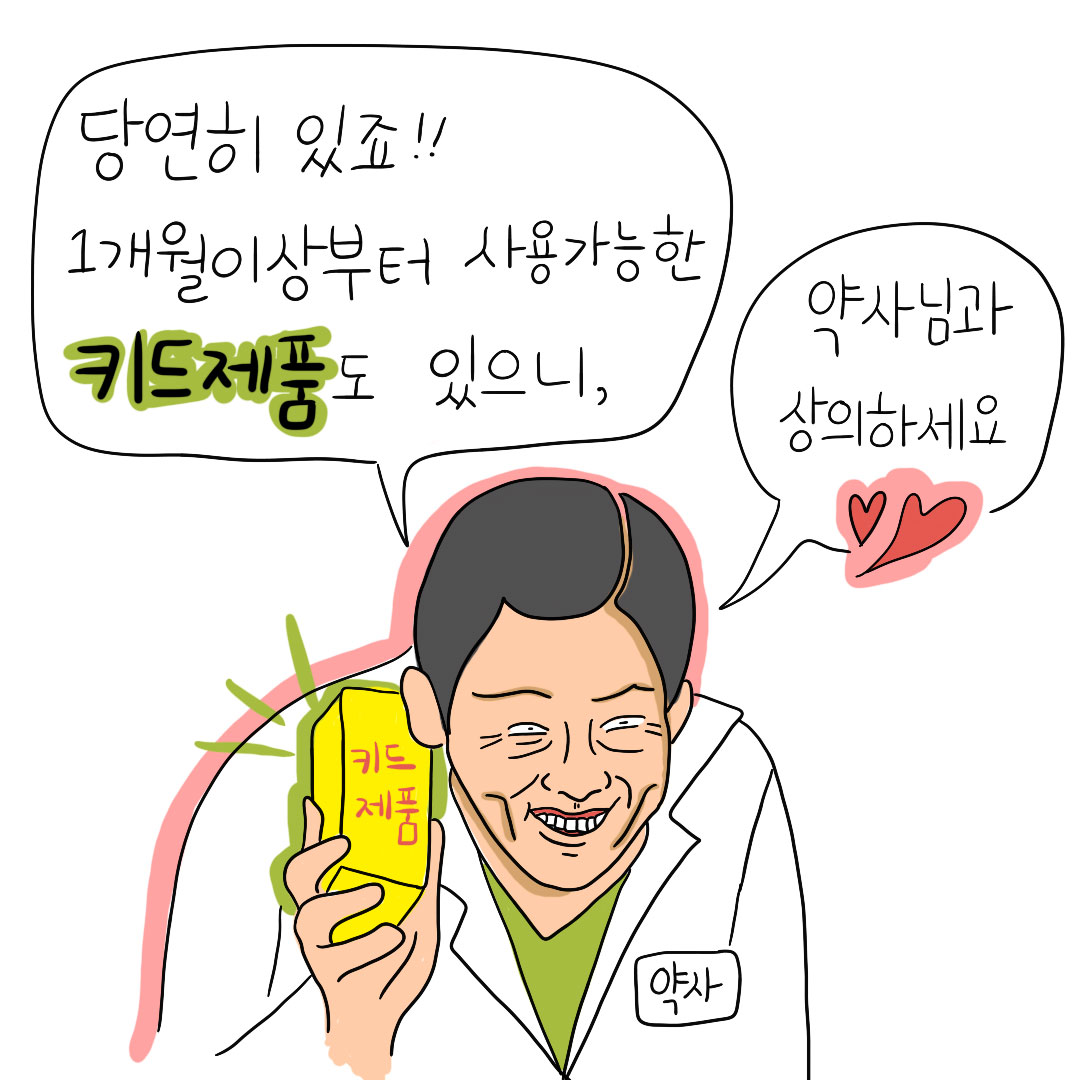 당연히 있죠!!
1개월이상부터 사용가능한
키드제품도 있으니,
약사님과
상의하세요
키드
제품
약사